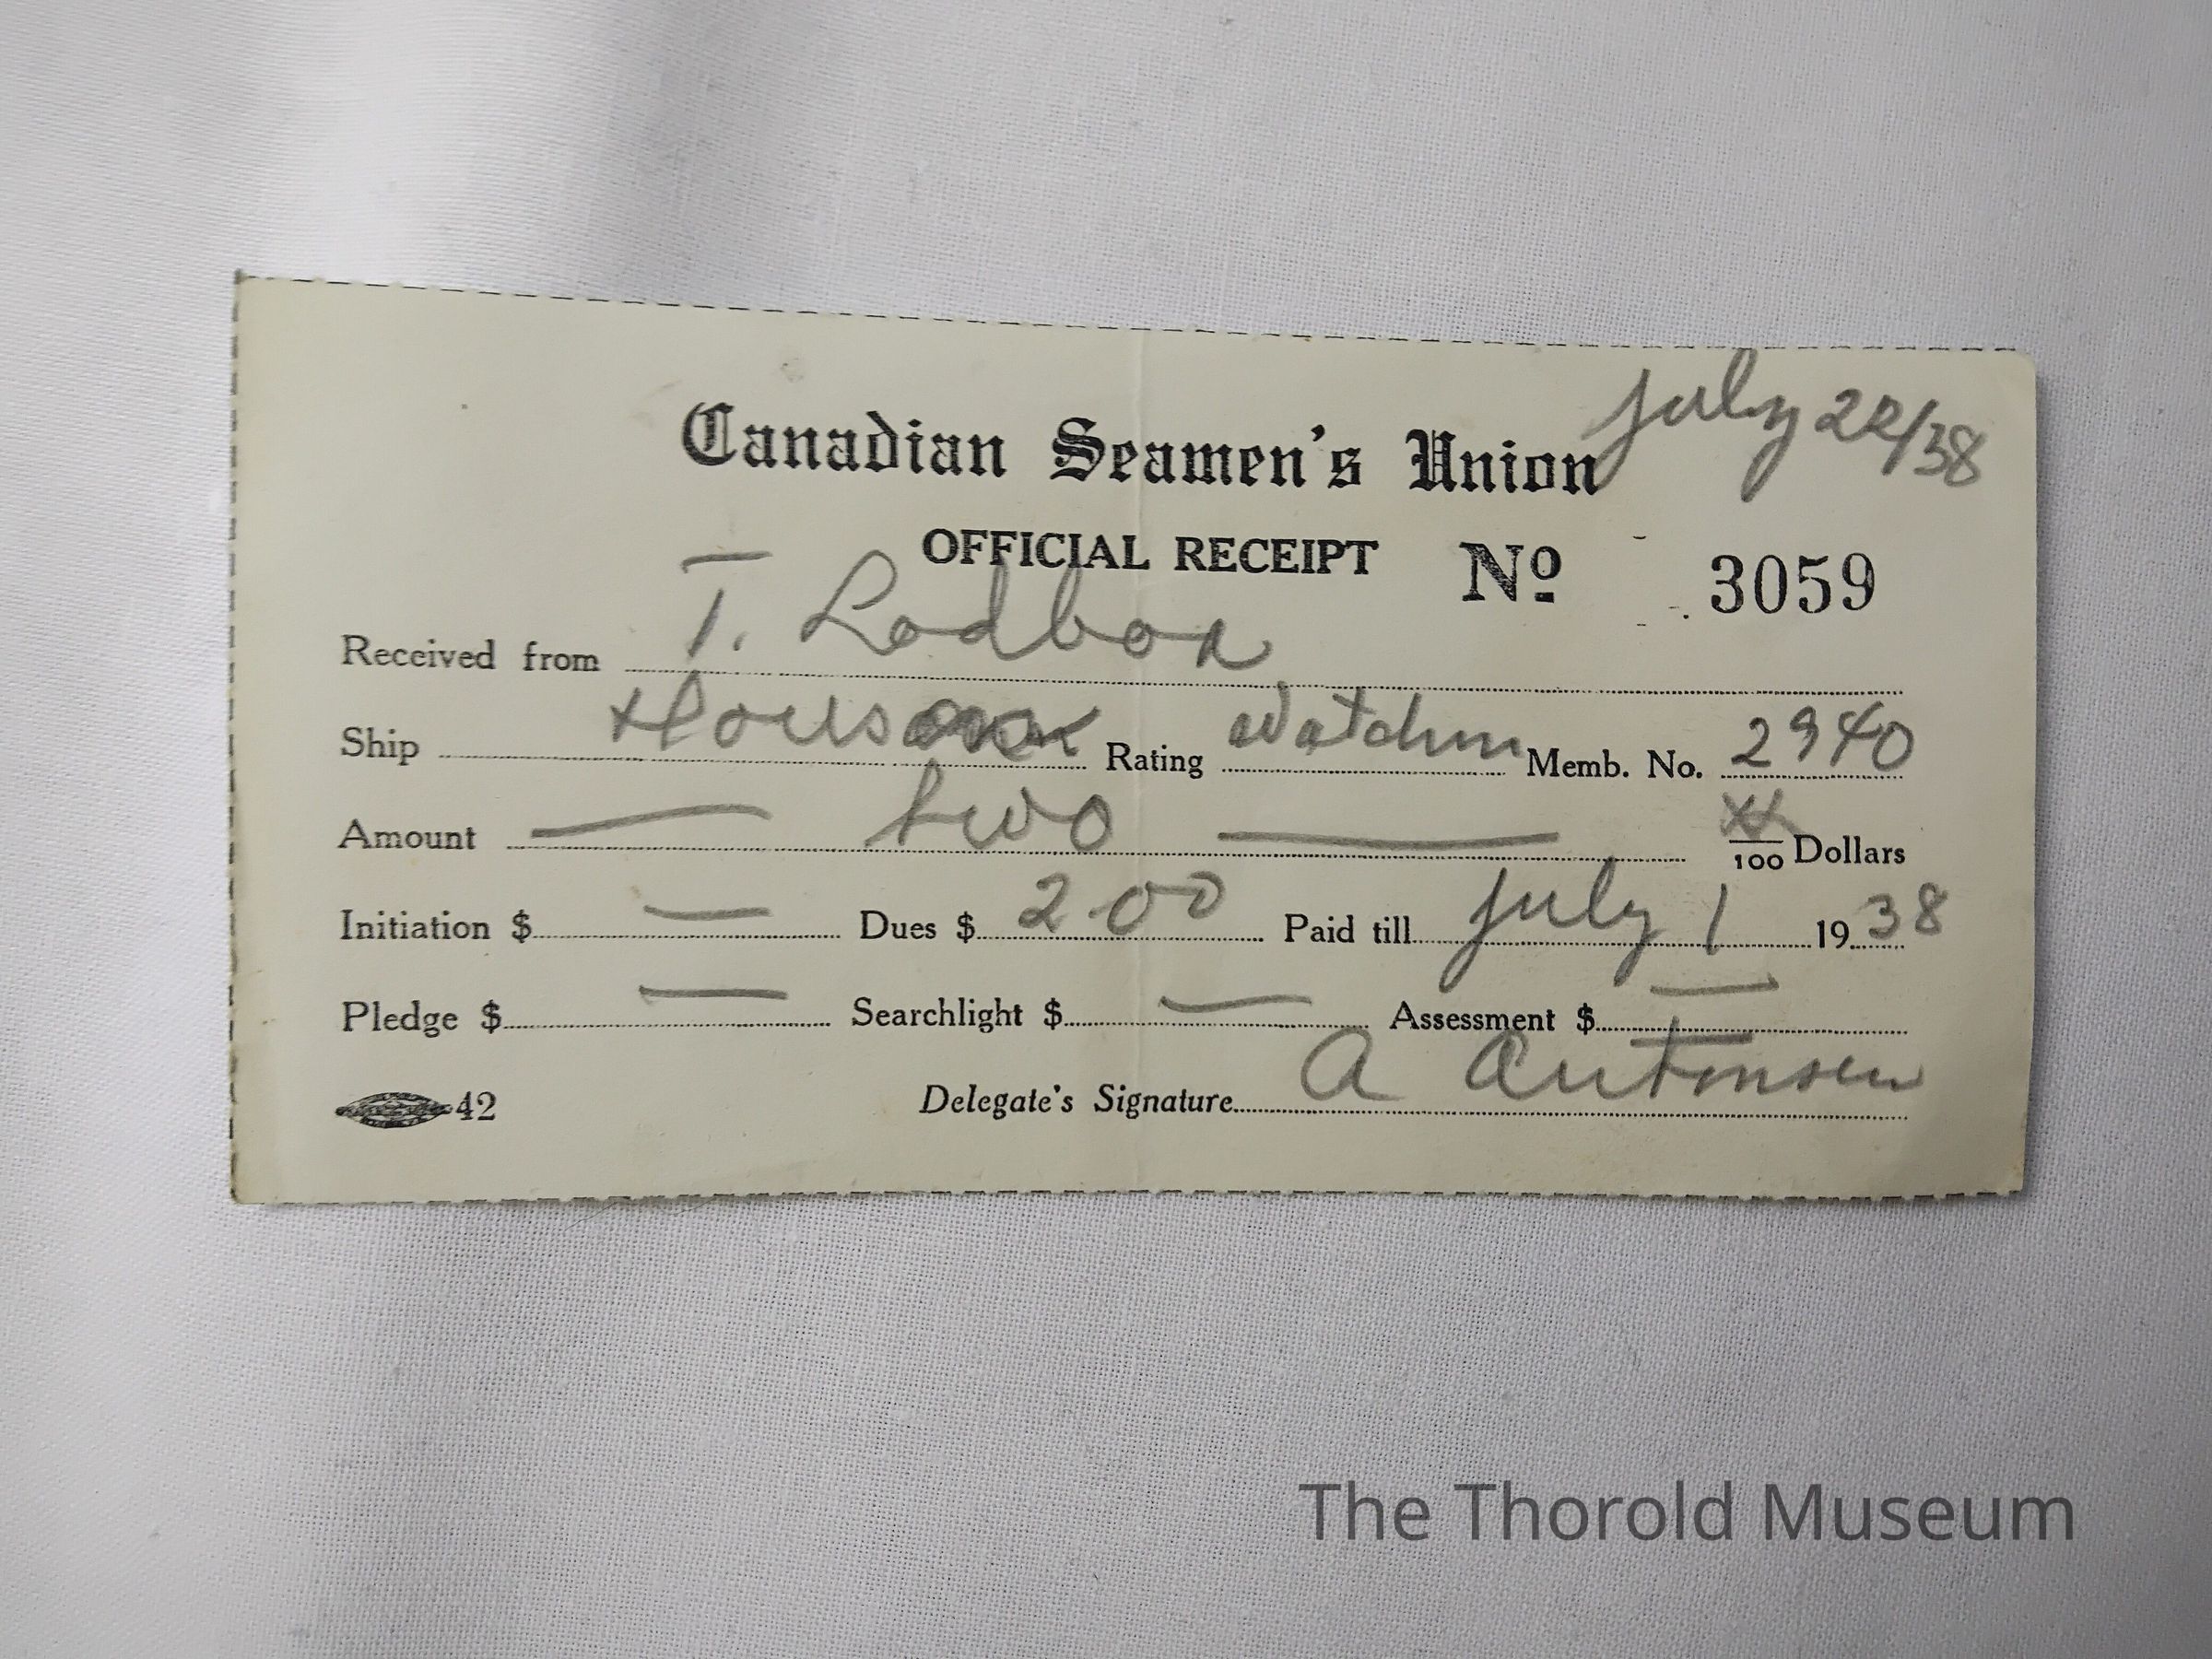 July 22/38
Canadian Seamen's Union
OFFICIAL RECEIPT Nº 3059
Received from T. Lodboa
Ship Rating Watchmn Memb. No. 2940
Amount — two — xx/100 Dollars
Initiation $ — Dues $ 2.00 Paid till July 1 1938
Pledge $ — Searchlight $ — Assessment $ —
42 Delegate's Signature A Antonsen
The Thorold Museum